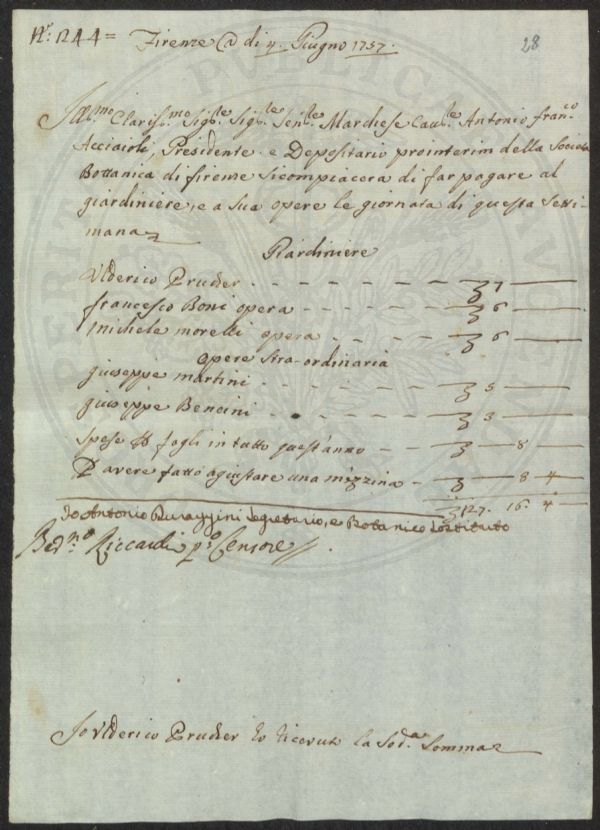 N.º 1244= Firenze @ di 4. Giugno 1757. 28
Ill.mo Claris.mo Sig.le Sig.le Sen.le Marchese Cau.le Antonio fran.co
Acciaioli, Presidente e Depositario prointerim della Societa
Bottanica di firenze si compiacera di far pagare al
giardiniere, e a sua opere le giornata di questa setti-
mana
Giardiniere
Ulderico Pruder - - - - - - 7 —
francesco Boni opera - - - - - 6 —
Michele morelli opera - - - - 6 —
opere stra-ordinaria
giuseppe martini - - - - - 5 —
giuseppe Bencini - - - - 3 —
spese p fogli in tutto quest'anno - — 8 —
P avere fatto agiustare una mezzina - — 8 4
127. 16. 4
Io Antonio Durazzini Segretario, e Botanico Sostituto
Bed.no Riccardi p.o Censore
Io Ulderico Pruder ho riceruto la Sod.a Somma